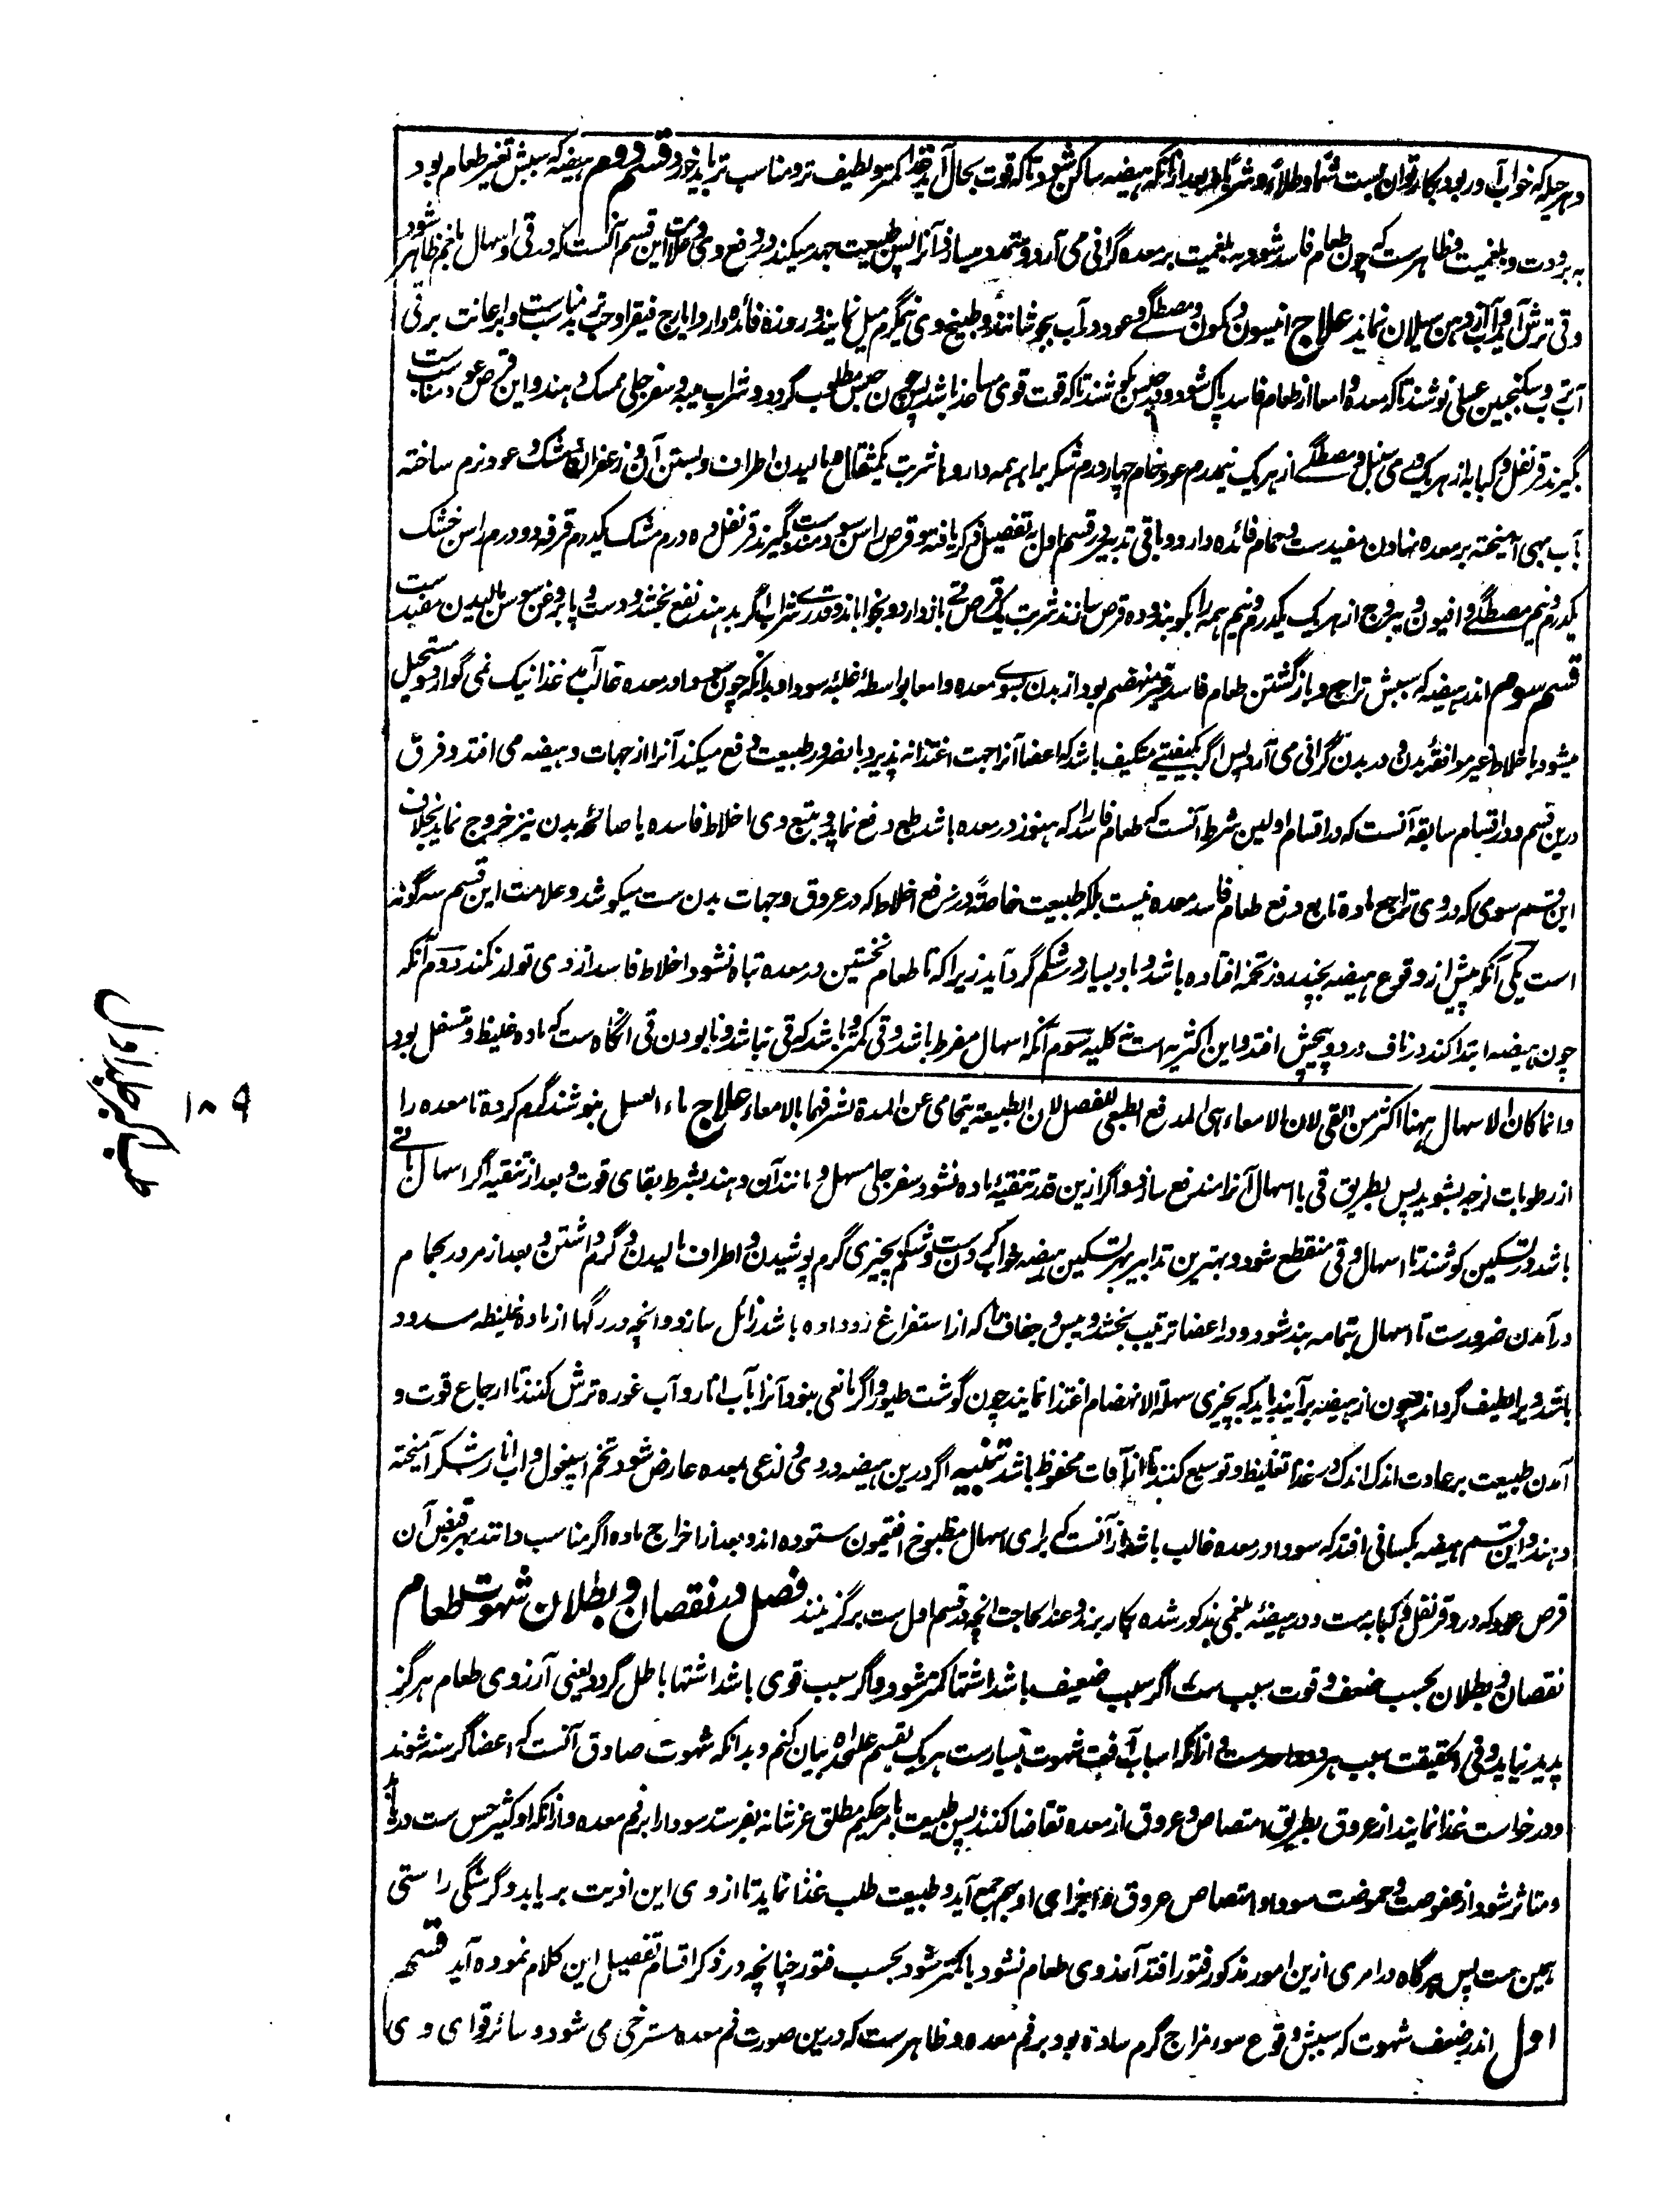 و هر حیله که خواب آور بود بکار توان بست شماً و طلاءً و شرباً و بعد از آنکه هیضه ساکن شود تا که قوت بحال آید غذا کمتر و لطیف تر و مناسب تر باید خورد قسم دوم هیضه که سببش تغیر طعام بود
به برودت و بلغمیت و ظاهرست که چون طعام فاسد شود به بلغمیت بر معده گرانی می آرد و متمدد میسازد آنرا پس طبیعت جهد میکند در دفع وی و علامت این قسم آنست که در قی و اسهال بلغم ظاهر شود
و قی ترش آید و آب از دهن سیلان نماید علاج انیسون و کمون و مصطگے و عود در آب بجوشانند و طبیخ وی نیمگرم میل نمایند و روزه فائده دارد و ایارج فیقرا و حب تربد مناسب ست و برای اعانت بر قی
آب ترب و سکنجبین عسلی نوشند تا که معده و امعا از طعام فاسد پاک شود و در حبس نکوشند تا که قوت قوی مساعد باشد پس چون حبس مطلوب گردد شراب میبه و سفرجلی ممسک دهند و این قرص عود مناسب ست
بگیرند قرنفل و کبابه از هر یک درمی سنبل و مصطگے از هر یک نیمدرم عود خام چهار درم شکر برابر همه دارو ها شربت یکمثقال و مالیدن اطراف و بستن آن و زعفران و مشک و عود نرم ساخته
بآب بهی آمیخته بر معده نهادن مفیدست و حمام فائده دارد و باقی تدبیر در قسم اول به تفصیل ذکر یافته و قرص راسن سودمندست بگیرند قرنفل ده درم مشک یکدرم قرفه دو درم راسن خشک
یکدرم و نیم مصطگے و افیون و یبروج از هر یک یکدرم و نیم همه را بکوبند و ده قرص سازند شربت یک قرص قے باز دارد و بخواباند و قدرے شراب اگر بدهند نفع بخشد و دست و پا بروغن سوسن مالیدن مفیدست
قسم سوم اندر هیضه که سببش تراجع و بازگشتن طعام فاسد غیر منهضم بود از بدن بسوے معده و امعا بواسطهٔ غلبهٔ سودا و بدانکه چون سودا در معده غالب آید غذا نیک نمی گوارد و مستحیل
میشود باخلاط غیر موافقهٔ بدن و در بدن گرانی می آرد پس اگر بکیفیتے متکیف باشد که اعضا آنرا جهت اغتذا نه پذیرد بالضرور طبیعت دفع میکند آنرا از جهات و هیضه می افتد و فرق
درین قسم و در اقسام سابقه آنست که در اقسام اولین شرط آنست که طعام فاسد را که هنوز در معده باشد طبع دفع نماید و به تبع وی اخلاط فاسده یا صالحه بدن نیز خروج نماید بخلاف
این قسم سوی که در وی تراجع ماده تابع دفع طعام فاسد معده نیست بلکه طبیعت خاصةً در دفع اخلاط که در عروق و جهات بدن ست میکوشد و علامت این قسم سه گونه
است یکی آنکه پیش از وقوع هیضه بچند روز تخمه افتاده باشد و باد بسیار در شکم گرد آید زیرا که تا طعام نخستین در معده تباه نشود اخلاط فاسد از وی تولد نکند دوم آنکه
چون هیضه ابتدا کند در ناف درد و پیچش افتد و این اکثریه است نه کلیه سوم آنکه اسهال مفرط باشد و قی کمتر و باشد که قی نباشد و نابودن قی انگاه ست که ماده غلیظ و متسفل بود
وانما کان الاسهال ههنا اکثر من القی لان الامعاء هی المدفع الطبعی للفصل لان الطبیعة یتحامی عن المعدة لشرفها بالامعاء علاج ماء العسل بنوشند گرم کرده تا معده را
از رطوبات لزجه بشوید پس بطریق قی یا اسهال آنرا مندفع سازد و اگر ازین قدر تنقیه ماده نشود سفرجلی مسهل و مانند آن دهند بشرط بقای قوت و بعد از تنقیه اگر اسهال باقے
باشد در تسکین کوشند تا اسهال و قی منقطع شود و بهترین تدابیر بهر تسکین هیضه خواب کردن ست و شکم بچیزی گرم پوشیدن و اطراف مالیدن و گرم داشتن و بعد از مرور بحمام
در آمدن ضرورست تا اسهال بتمامه بند شود و در اعضا ترتیب بخشد و یبس و جفاف را که از استفراغ رو داده باشد زائل سازد و انچه در رگها از ماده غلیظه مسدود
باشد ویرا لطیف گرداند و چون از هیضه برآیند باید که بچیزی سهلة الانهضام اغتذا نمایند چون گوشت طیور و اگر مانعی نبود آنرا بآب انار و آب غوره ترش کنند تا ارجاع قوت و
آمدن طبیعت بر عادت اندک اندک در غذا تغلیظ و توسیع کنند تا از آفات محفوظ باشد تنبیه اگر درین هیضه دردی و لذعی بمعده عارض شود تخم اسپغول و آب انار بشکر آمیخته
دهند و این قسم هیضه بکسانی افتد که سودا در معده غالب باشد از آنست که برای اسهال مطبوخ افتیمون ستوده اند و بعد از اخراج ماده اگر مناسب دانند بهر قبض آن
قرص عود که در و قرنفل و کبابه ست و در هیضه بلغمی مذکور شده بکار برند و عند الحاجت انچه در قسم اول ست برگزینند فصل در نقصان و بطلان شهوت طعام
نقصان و بطلان بحسب ضعف و قوت سبب ست اگر سبب ضعیف باشد اشتها کمتر شود و اگر سبب قوی باشد اشتها باطل گردد یعنی آرزوی طعام هرگز
پدید نیاید و فی الحقیقت سبب هر دو واحدست و ازانکه اسباب آفت شهوت بسیارست هر یک بقسم علیحده بیان کنم و بدانکه شهوت صادق آنست که اعضا گرسنه شوند
و درخواست غذا نمایند از عروق بطریق امتصاص و عروق از معده تقاضا کنند پس طبیعت بامر حکیم مطلق عز شانه بفرستد سودا را بر فم معده و ازانکه او کثیر حس ست دریابد
و متاثر شود از عفوصت و حموضت سودا و امتصاص عروق و اجزای او بهم جمع آید و طبیعت طلب غذا نماید تا از وی این اذیت بر یابد و گرسنگی راستی
همین ست پس هرگاه در امری ازین امور مذکور فتور افتد آرزوی طعام نشود یا کمتر شود بحسب فتور چنانچه در ذکر اقسام تفصیل این کلام نموده آید قسم
اول اندر ضعف شهوت که سببش وقوع سوء مزاج گرم ساده بود بر فم معده و ظاهرست که درین صورت فم معده مسترخی می شود و سائر قوای وی
طب اکبر جلد اول
۱۰۹